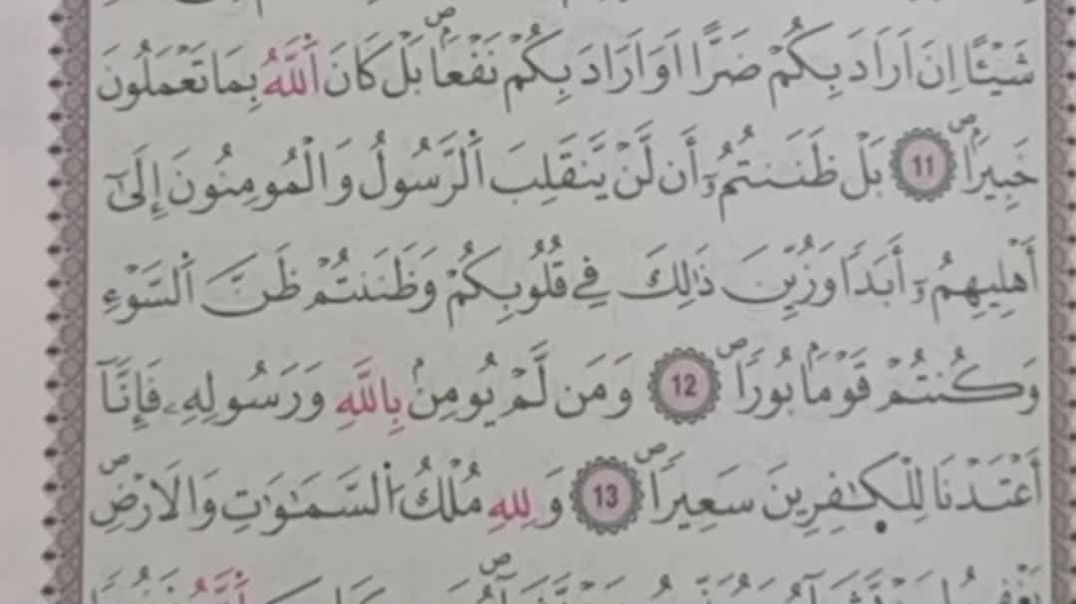 شَيْـًٔا اِنَ اَرَادَ بِكُمْ ضَرًّا اَوَ اَرَادَ بِكُمْ نَفْعَاۢۖ بَلْ كَانَ اَ۬للَّهُ بِمَا تَعْمَلُونَ
خَبِيراٗۖ 11 بَلْ ظَنَنتُمُۥٓ أَن لَّنْ يَّنقَلِبَ اَ۬لرَّسُولُ وَالْمُومِنُونَ إِلَىٰٓ
أَهْلِيهِمُۥٓ أَبَداٗ وَزُيِّنَ ذَٰلِكَ فِے قُلُوبِكُمْ وَظَنَنتُمْ ظَنَّ اَ۬لسَّوْءِ
وَكُنتُمْ قَوْماَۢ بُوراٗۖ 12 وَمَن لَّمْ يُومِنۢ بِاللَّهِ وَرَسُولِهِۦ فَإِنَّآ
أَعْتَدْنَا لِلْكٰ۪فِرِينَ سَعِيراٗۖ 13 وَلِلهِ مُلْكُ اُ۬لسَّمَٰوَٰتِ وَالَارْضِۖ